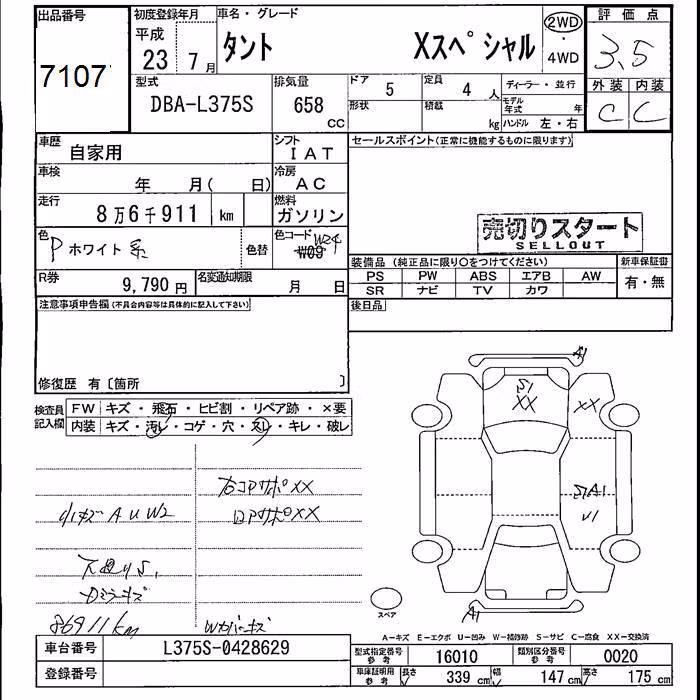 出品番号
7107
初度登録年月
平成
23年7月
車名・グレード
タント Xスペシャル
2WD
・
4WD
評価点
3.5
外装 内装
C C
型式
DBA-L375S
排気量
658
CC
ドア
5
定員
4人
形状
積載
kg
ディーラー・並行
モデル年式 年
ハンドル 左・右
車歴
自家用
シフト
IAT
セールスポイント(正常に機能するものに限ります)
車検
年 月( 日)
冷房
AC
走行
8万6千911 km
燃料
ガソリン
色
P ホワイト系
色替
色コード
W24
W09
売切りスタート
SELLOUT
R券
9,790円
名変通知期限
月 日
装備品(純正品に限り〇をつけてください)
新車保証書
PS PW ABS エアB AW
有・無
SR ナビ TV カワ
注意事項申告欄(不具合内容等は具体的に記入して下さい)
後日品
修復歴 有〔箇所 〕
検査員記入欄
FW キズ・飛石・ヒビ割・リペア跡・×要
内装 キズ・汚レ・コゲ・穴・スレ・キレ・破レ
A1
S1
XX
XX
S1A1
U1
A1
右コアサポXX
小キズAUW2
ロアサポXX
下廻りS,
Dミラーキズ
86911km
Wカバーキズ
スペア
A-キズ E-エクボ U-凹み W-補修跡 S-サビ C-腐食 XX-交換済
車台番号
L375S-0428629
登録番号
型式指定番号
参考
16010
類別区分番号
参考
0020
車庫証明用
参考
長さ
339cm
幅
147cm
高さ
175cm